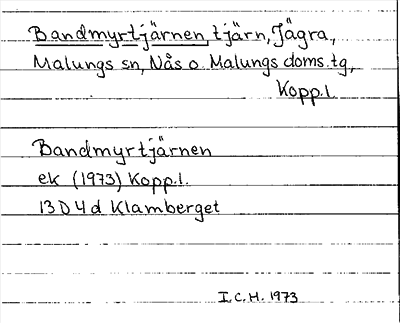 Bandmyrtjärnen, tjärn, Jägra,
Malungs sn, Nås o. Malungs doms.tg,
Kopp.l.
Bandmyrtjärnen
ek (1973) Kopp.l.
13D4d Klamberget
I.C.H. 1973